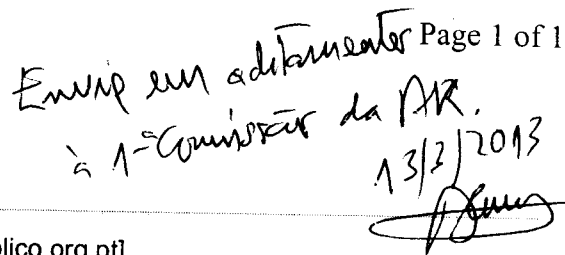 Page 1 of 1
Envie em aditamento
à 1ª Comissão da AR.
13/3/2013
blico.org.pt]